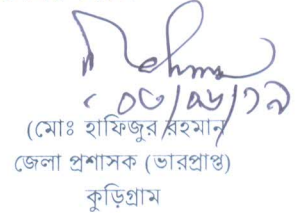 ০৩/০৬/১৯
(মোঃ হাফিজুর রহমান)
জেলা প্রশাসক (ভারপ্রাপ্ত)
কুড়িগ্রাম